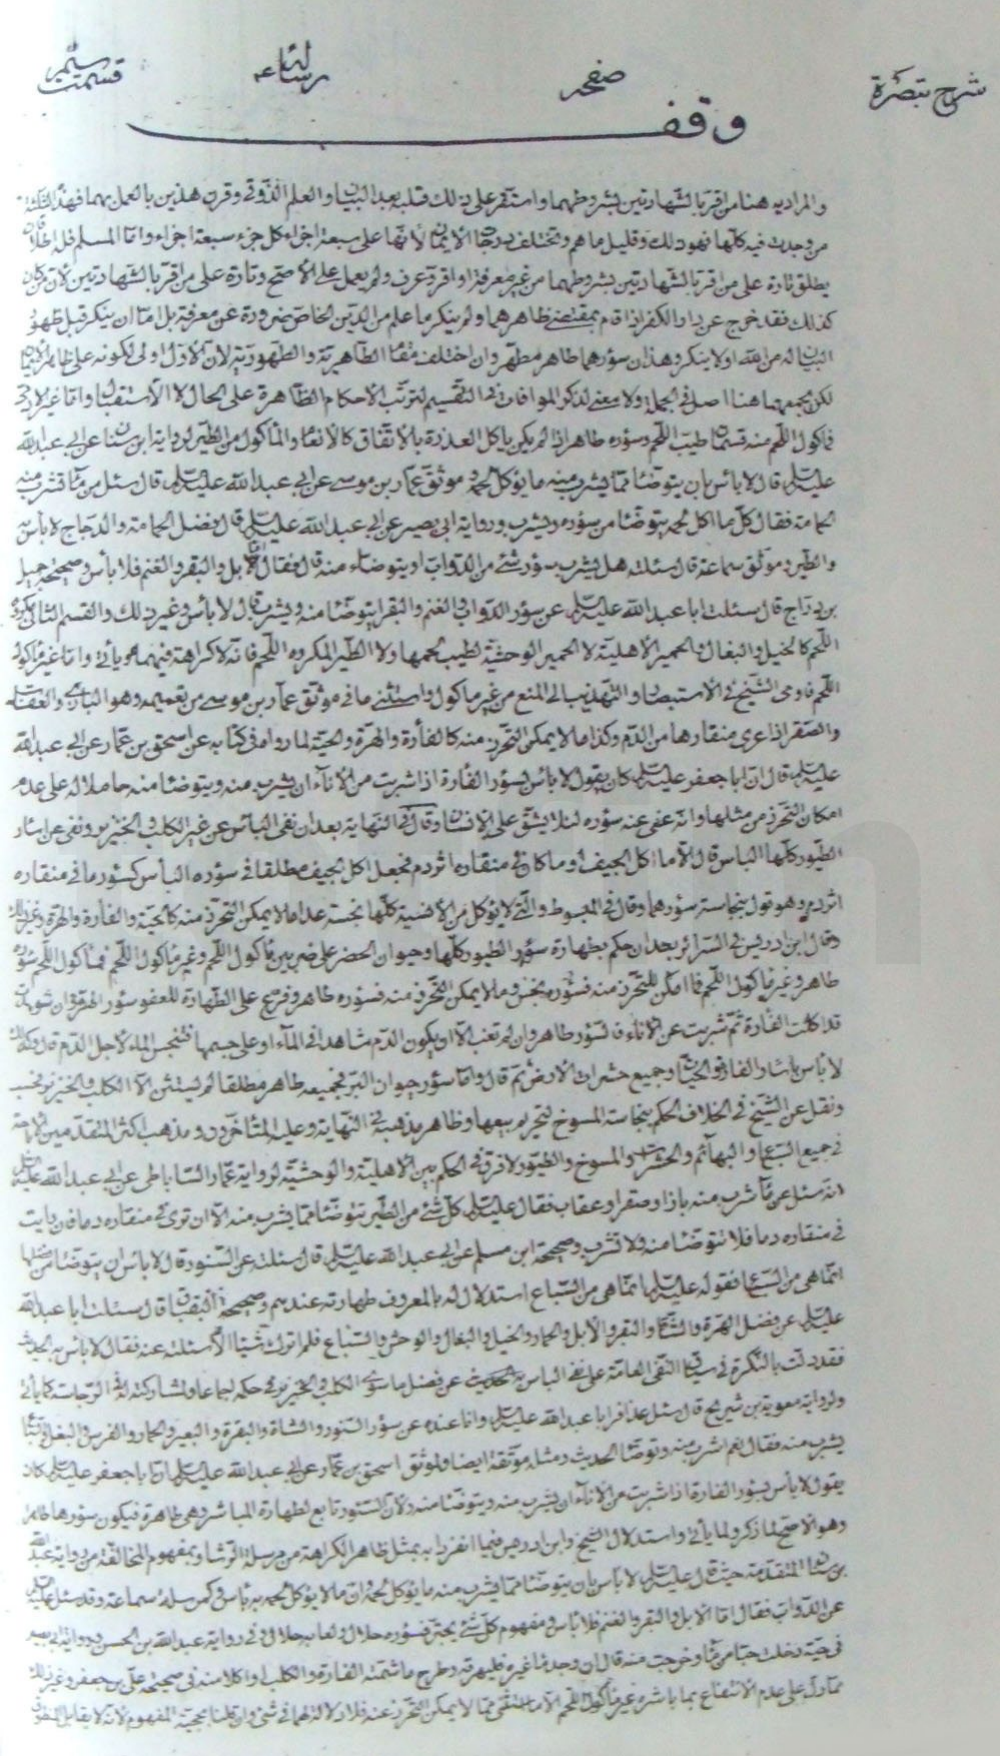 شرح تبصرة صفحه رسالته قسمت ستمبر
وقف
والمراد به هنا من اقر بالشهادتين بشروطهما واستقر على ذلك قلبه بعد البيان والعلم الذوقى وقرن هذين بالعمل بهما فهذه الثلثة
من وجدت فيه كلها فهو ذلك وقليل ما هم وتختلف درجات الايمان لأنها على سبعة اجزاء كل جزء سبعة اجزاء واما المسلم فله اطلاقان
يطلق تارة على من اقر بالشهادتين بشروطهما من غير معرفة او اقر وعرف ولم يعمل على الأصح وتارة على من اقر بالشهادتين لان من كان
كذلك فقد خرج عن دار الكفر اذا قام بمقتضى ظاهرهما ولم ينكر ما علم من الدين الخاص ضرورة عن معرفة بل اما ان ينكر قبل ظهور
البيان له من الله اولا ينكر وهذان سؤرهما طاهر مطهر وان اختلف مقتضى الطاهرية والطهورية لأن الأول اولى لكونه على ظاهر الايمان
لكن يجمعهما هنا اصل فى الجملة ولا معنى لذكر الموافات فى التقسيم لترتب الاحكام الظاهرة على الحال لا الاستقبال واما غير الادمى
فمأكول اللحم منه قسمان طيب اللحم وسؤره طاهر اذا لم يكن ياكل العذرة بالاتفاق كالأنعام والمأكول من الطير لرواية ابن سنان عن ابى عبد الله
عليه السلام قال لا بأس بان يتوضأ مما يشرب منه ما يؤكل لحمه وموثق عمار بن موسى عن ابى عبد الله عليه السلام قال سئل عن ما تشرب منه
الحمامة فقال كل ما اكل لحمه يتوضأ من سؤره ويشرب ورواية ابى بصير عن ابى عبد الله عليه السلام قال فضل الحمامة والدجاج لا بأس به
والطير وموثق سماعة قال سئلته هل يشرب سؤر شئ من الدواب او يتوضاء منه قال فقال اما الابل والبقر والغنم فلا بأس وصحيحة جميل
بن دراج قال سئلت ابا عبد الله عليه السلام عن سؤر الدواب والغنم والبقر ايتوضأ منه ويشرب قال لا بأس وغير ذلك والقسم الثانى مكروه
اللحم كالخيل والبغال والحمير الأهلية لا الحمير الوحشية لطيب لحمها ولا الطير المكروه اللحم فانه لا كراهة فيهما لما يأتى واما غير مأكول
اللحم فاومى الشيخ فى الاستبصار والتهذيب الى المنع من غير ماكول واستثنى ما فى موثق عمار بن موسى من تعميمه وهو البازى والعقاب
والصقر اذا عرى منقارها من الدم وكذا ما لا يمكن التحرز منه كالفأرة والهرة والحية لما رواه فى كتابه عن اسحق بن عمار عن ابى عبد الله
عليه السلام قال ان ابا جعفر عليه السلام كان يقول لا بأس بسؤر الفأرة اذا شربت من الأناء ان يشرب منه ويتوضأ منه حاملا له على عدم
امكان التحرز من مثلها وانه عفى عنه سؤره لئلا يشق على الإنسان وقال فى النهاية بعد ان نفى البأس عن غير الكلب والخنزير ونفى عن اسئار
الطيور كلها البأس قال الا ما اكل الجيف او ما كان فى منقاره اثر دم فجعل اكل الجيف مطلقا فى سؤره البأس كسؤر ما فى منقاره
اثر دم وهو قول بنجاسة سؤرهما وقال فى المبسوط والتى لا يؤكل من الأنسية كلها نجسة عدا ما لا يمكن التحرز منه كالحية والفأرة والهرة وغير ذلك
وقال ابن ادريس فى السرائر بعد ان حكم بطهارة سؤر الطيور كلها وحيوان الحضر على ضربين مأكول اللحم وغير مأكول اللحم فمأكول اللحم سؤره
طاهر وغير مأكول اللحم فما امكن للتحرز منه فسؤره نجس وما لا يمكن التحرز منه فسؤره طاهر وفرع على الطهارة للعفو سؤر الهرة وان شوهدت
قد اكلت الفارة ثم شربت عن الاناء فالسؤر طاهر وان لم تغب الا ان يكون الدم مشاهدا فى الماء او على جسمها فتنجس الماء لأجل الدم قال وكذلك
لا بأس باسئار الفار والحيات وجميع حشرات الأرض ثم قال واما سؤر حيوان البر فجميعه طاهر مطلقا لم يستثن الا الكلب والخنزير فحسب
ونقل عن الشيخ فى الخلاف الحكم بنجاسة المسوخ لتحريم بيعها وظاهر مذهبه فى النهاية وعليه المتأخرون ومذهب اكثر المتقدمين
فى جميع السباع والبهائم والحشرات والمسوخ والطيور لا فرق فى الحكم بين الأهلية والوحشية لرواية عمار الساباطى عن ابى عبد الله عليه السلام
انه سئل عن ماء شرب منه باز او صقر او عقاب فقال عليه السلام كل شئ من الطير تتوضأ مما يشرب منه الا ان ترى فى منقاره دما فان رايت
فى منقاره دما فلا تتوضأ منه ولا تشرب وصحيحة ابن مسلم عن ابى عبد الله عليه السلام قال سئلته عن السنور قال لا بأس ان يتوضأ من فضلها
انما هى من السباع فقوله عليه السلام انما هى من السباع استدلال له بالمعروف طهارته عندهم وصحيحة البقباق قال سئلت ابا عبد الله
عليه السلام عن فضل الهرة والشاة والبقر والأبل والحمار والخيل والبغال والوحش والسباع فلم اترك شيئا الا سئلته عنه فقال لا بأس به الحديث
فقد دلت بالنكرة فى سياق النفى العامة على نفى البأس عن فضل ما سوى الكلب والخنزير فى حكمه اجماعا ولمشاركته له فى الرجاسة كما يأتى
ولرواية معوية بن شريح قال سئل عذافر ابا عبد الله عليه السلام وانا عنده عن سؤر السنور والشاة والبقرة والبعير والحمار والفرس والبغال والسباع
يشرب منه فقال نعم اشرب منه وتوضأ الحديث ومثله موثقة ايضا ولموثق اسحق بن عمار عن ابى عبد الله عليه السلام ان ابا جعفر عليه السلام كان
يقول لا بأس بسؤر الفارة اذا شربت من الأناء ان يشرب منه ويتوضأ منه ولان السؤر تابع لطهارة المباشر وهى طاهرة فيكون سؤرها طاهرا
وهو الأصح لما ذكر ولما يأتى واستدلال الشيخ وابن ادريس فيما انفردا به بمثل ظاهر الكراهة من مرسلة الوشاء وبمفهوم المخالفة من رواية عبد الله
بن سنان المتقدمة حيث قال عليه السلام لا بأس بان يتوضأ مما يشرب منه ما يؤكل لحمه وان ما لا يؤكل لحمه به بأس وكمرسلة سماعة وقد سئل عليه السلام
عن الدواب فقال اما الابل والبقر والغنم فلا بأس ومفهوم كل شئ يجتر فسؤره حلال ولعابه حلال وفى رواية عبد الله بن الحسن ورواية ابى بصير
فى حية دخلت حبا من ماء وخرجت منه قال ان وجد ماء غيره فليهرقه وطرح ما شمته الفارة والكلب او اكلا منه فى صحيحة على بن جعفر وغير ذلك
مما دل على عدم الانتفاع بما باشره غير مأكول اللحم الا ما استثنى مما لا يمكن التحرز عنه فلا دلالة لهما فى شئ وان قلنا بحجية المفهوم لانه لا يقابل المنطوق